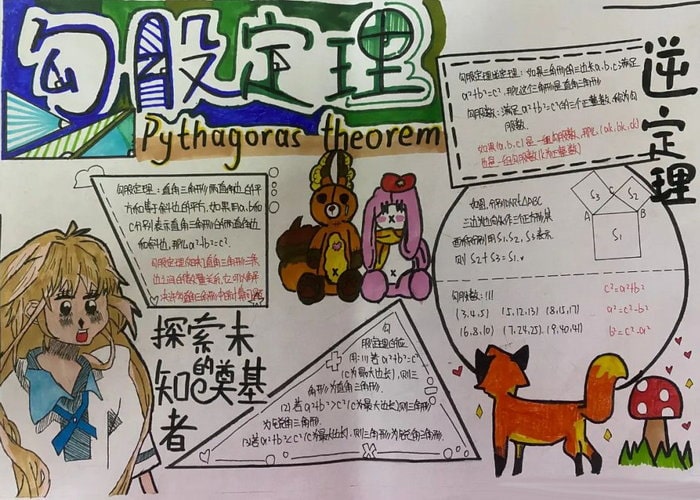 勾股定理
Pythagoras theorem
逆定理
勾股定理逆定理：如果三角形的三边长a.b.c满足
a²+b²=c²，那么这个三角形是直角三角形
勾股数：满足a²+b²=c²的三个正整数，称为勾
股数.
如果(a.b.c)是一组勾股数，那么(ak.bk.ck)
也是一组勾股数(k为正整数)
勾股定理：直角三角形两直角边的平
方和等于斜边的平方. 如果用a.b和
c分别表示直角三角形的两直角边
和斜边，那么a²+b²=c².
如图，分别以Rt△ABC
三边为边向外作三个正方形，其
面积分别用S₁.S₂.S₃表示
则S₂+S₃=S₁.
S₃
C
S₂
A
B
S₁
勾股数：
(3.4.5)
(5.12.13)
(8.15.17)
(6.8.10)
(7.24.25)
(9.40.41)
c²=a²+b²
a²=c²-b²
b²=c²-a²
探索未
知的奠基
者
勾
股定理的应
用：(1)若a²+b²=c²
(c为最大边长)，则三
角形为直角三角形.
(2)若a²+b²>c²(c为最大边长)，则三角形
为锐角三角形.
(3)若a²+b²<c²(c为最大边长)，则三角形为钝角三角形.